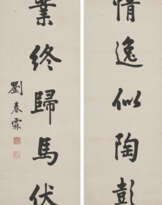 情逸似陶彭
業終歸馬伏
劉春霖